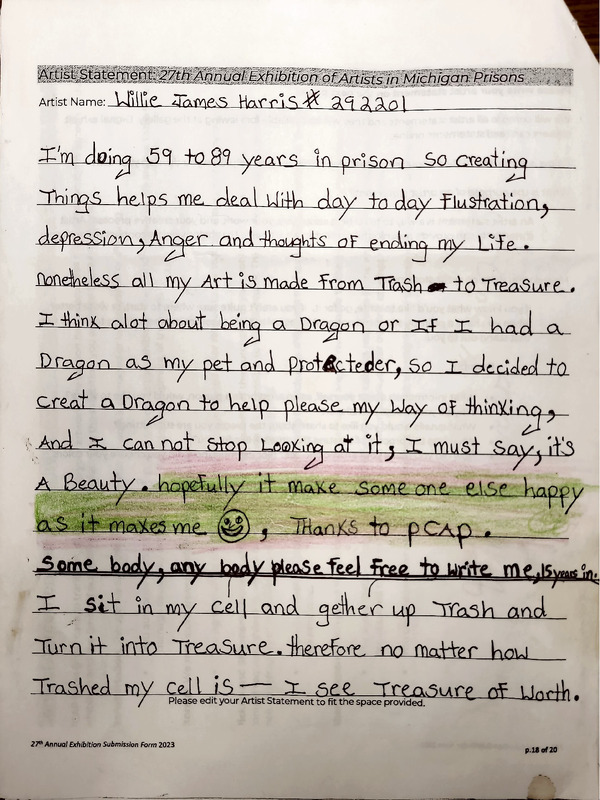 Artist Statement: 27th Annual Exhibition of Artists in Michigan Prisons
Artist Name: Willie James Harris # 292201
I'm doing 59 to 89 years in prison so creating
Things helps me deal With day to day Flustration,
depression, Anger and thoughts of ending my Life.
nonetheless all my Art is made from Trash to Treasure.
I think alot about being a Dragon or If I had a
Dragon as my pet and protecteder, so I decided to
creat a Dragon to help please my Way of thinking,
And I can not stop Looking at it, I must say, it's
A Beauty. hopefully it make some one else happy
as it makes me ☺, THanks to PCAP.
Some body, any body please feel free to write me, 15 years in.
I sit in my cell and gether up Trash and
Turn it into Treasure. therefore no matter how
Trashed my cell is — I see Treasure of Worth.
Please edit your Artist Statement to fit the space provided.
27th Annual Exhibition Submission Form 2023
p.18 of 20